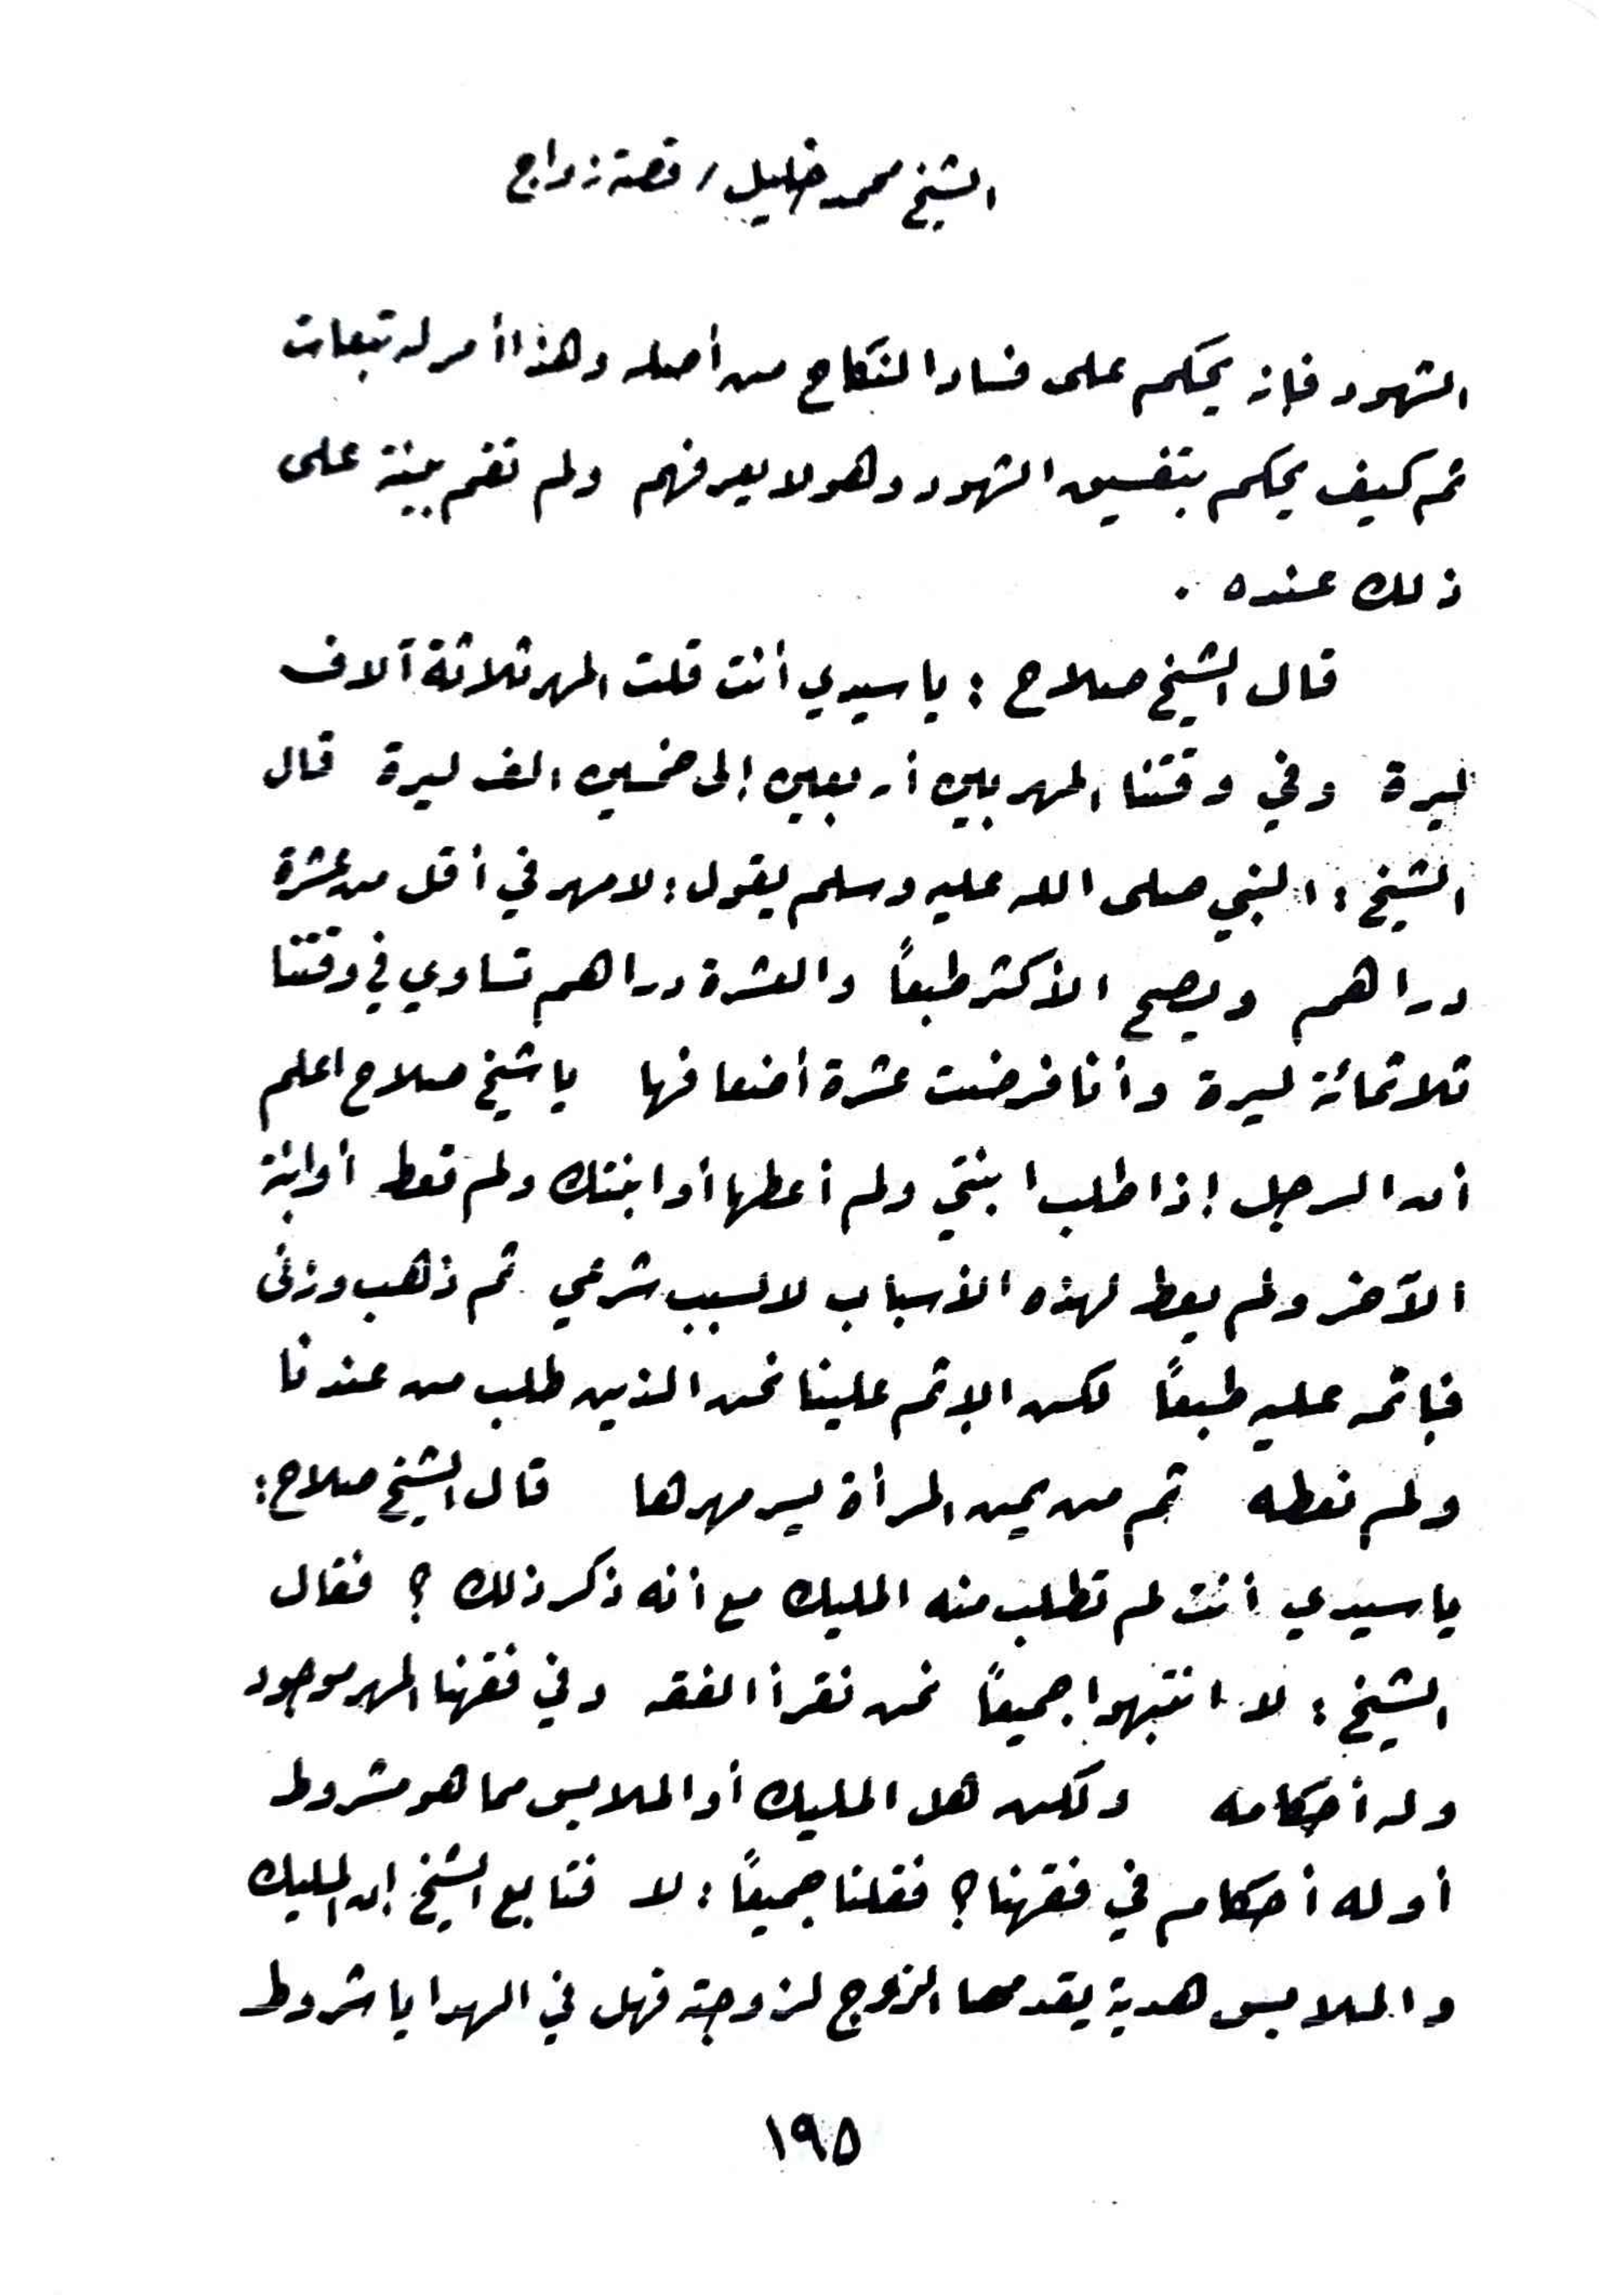 الشيخ محمد خليل / قصة زواج
الشهود فإنه يحكم على فساد النكاح من أصله وهذا أمر له تبعات
ثم كيف يحكم بتفسيق الشهود وهو لا يعرفهم ولم تقم بينة على
ذلك عنده .
قال الشيخ صلاح : يا سيدي أنت قلت المهر ثلاثة آلاف
ليرة وفي وقتنا المهر بين أربعين إلى خمسين الف ليرة قال
الشيخ : النبي صلى الله عليه وسلم يقول : لا مهر في أقل من عشرة
دراهم ويصح الأكثر طبعاً والعشرة دراهم تساوي في وقتنا
ثلاثمائة ليرة وأنا فرضت عشرة أضعافها يا شيخ صلاح اعلم
أن الرجل إذا طلب ابنتي ولم أعطها أو ابنتك ولم تعط أو ابنة
الآخر ولم يعط لهذه الأسباب لا لسبب شرعي ثم ذهب وزنى
فإثمه عليه طبعاً لكن الإثم علينا نحن الذين طلب من عندنا
ولم نعطه ثم من يمن المرأة يسر مهرها قال الشيخ صلاح :
يا سيدي أنت لم تطلب منه المليك مع أنه ذكر ذلك ؟ فقال
الشيخ : لا انتبهوا جميعاً نحن نقرأ الفقه وفي فقهنا المهر موجود
وله أحكامه ولكن هل المليك أو الملابس مما هو مشروط
أو له أحكام في فقهنا ؟ فقلنا جميعاً : لا فتابع الشيخ إن المليك
والملابس هدية يقدمها الزوج لزوجته فهل في الهدايا شروط
١٩٥